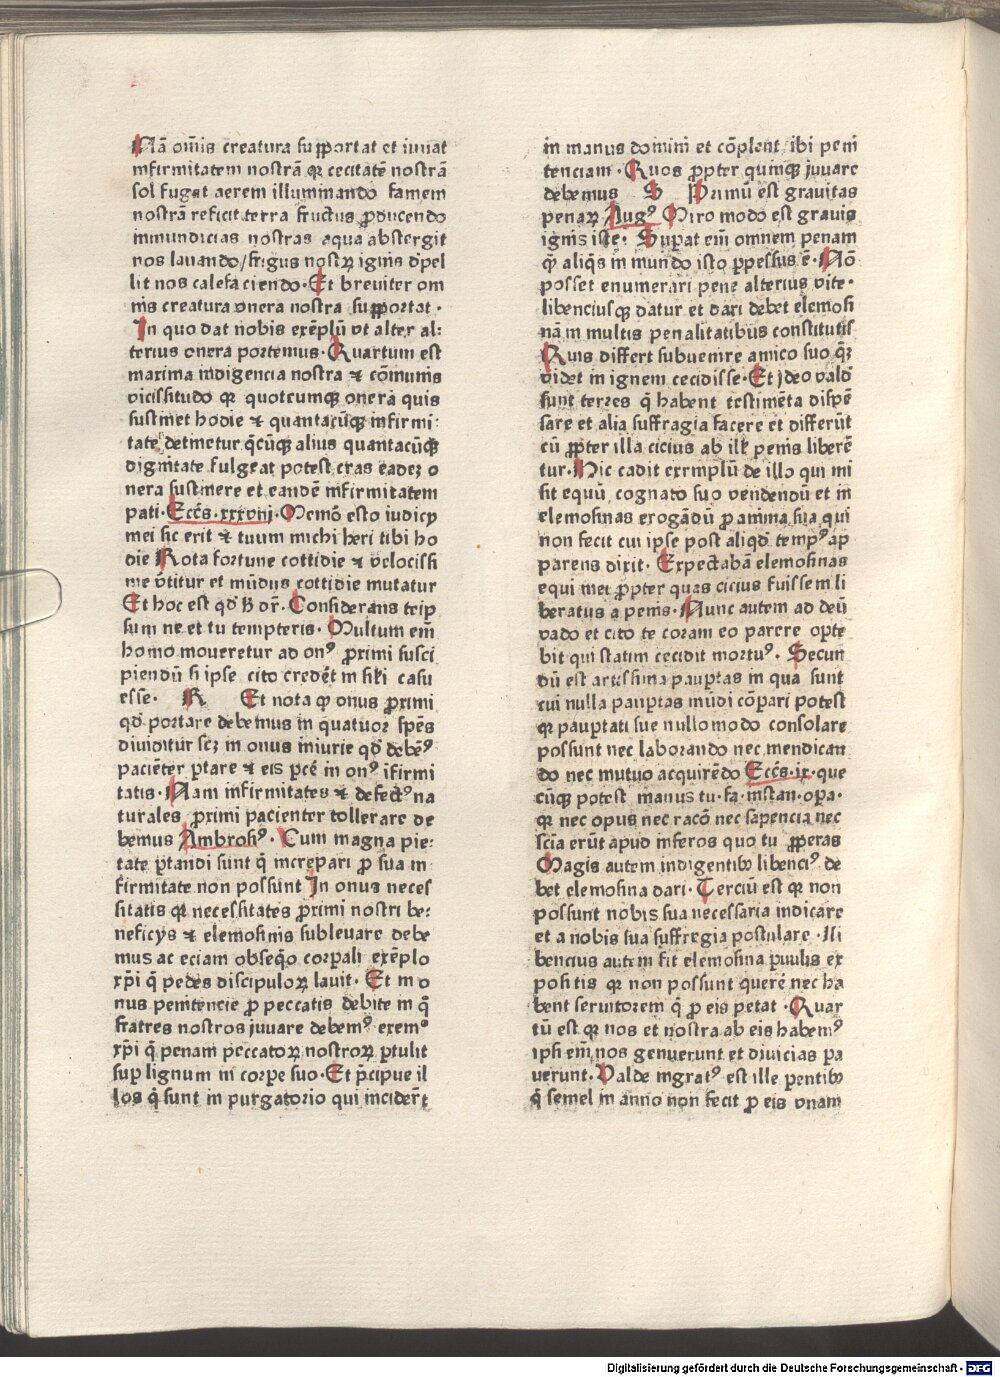 Nā om̄is creatura supportat et iuuat
infirmitatem nostrā qꝛ cecitatē nostrā
sol fugat aerem illuminando famem
nostrā reficit terra fructus ꝓducendo
immundicias nostras aqua abstergit
nos lauando/frigus nostrꝝ ignis dꝓpel
lit nos calefaciendo·Et breuiter om
nis creatura onera nostra supportat·
In quo dat nobis exēplū vt alter al:
terius onera portemus·Quartum est
maxima indigencia nostra ⁊ cōmunis
vicissitudo qꝛ quotcumqꝫ onera quis
sustinet hodie ⁊ quantacūqꝫ infirmi:
tate detinetur q̄cūqꝫ alius quantacūqꝫ
dignitate fulgeat potest cras eadeꝫ o
nera sustinere et eandē infirmitatem
pati·Eccēs·xxxviij·Memō esto iudicij
mei sic erit ⁊ tuum michi heri tibi ho
die Rota fortune cottidie ⁊ velocissi
me v̄titur et mūdus cottidie mutatur
Et hoc est qd̄ ꝧ dr̄·Considerans teip
sum ne et tu tempteris·Multum em̄
homo moueretur ad onꝰ ꝓximi susci
piendū si ipse cito credēt in sili casu
esse· R Et nota ꝙ onus ꝓximi
qd̄ portare debemus in quatuor sꝑēs
diuiditur scꝫ in onus iniurie qd̄ debēꝰ
paciēter ꝑtare ⁊ eis ꝑcē in onꝰ ifirmi
tatis·Nam infirmitates ⁊ defectꝰ na
turales ꝓximi pacienter tollerare de
bemus Ambrosiꝰ·Cum magna pie:
tate ꝑtandi sunt q̄ increpari ꝓ sua in
firmitate non possunt In onus neces
sitatis qꝛ necessitates ꝓximi nostri be:
neficys ⁊ elemosinis subleuare debe
mus ac eciam obseq̄o corꝑali exēplo
xp̄i q̄ pedes discipuloꝝ lauit·Et in o
nus penitencie ꝓ peccatis debite in q̄
fratres nostros iuuare debemꝰ exemº
xp̄i q̄ penam peccatoꝝ nostroꝝ ꝑtulit
suꝑ lignum in corꝑe suo·Et p̄cipue il
los q̄ sunt in purgatorio qui inciderēt
in manus domini et cōplent ibi peni
tenciam·Quos ꝓpter quinqꝫ iuuare
debemus S Primū est grauitas
penaꝝ Augꝰ Miro modo est grauis
ignis iste·Suꝑat em̄ omnem penam
ꝙ aliq̄s in mundo isto ꝑpessus ē·Nō
posset enumerari pene alterius vite·
libenciusqꝫ datur et dari debet elemosi
nā in multis penalitatibus constitutis
Quis differt subuenire amico suo qn̄
videt in ignem cecidisse·Et ideo vald̄
sunt terres q̄ habent testimēta dispē
sare et alia suffragia facere et differūt
cū ꝓpter illa cicius ab ill̄ penis liberē
tur·Hic cadit exemplū de illo qui mi
sit equū cognato suo vendendū et in
elemosinas erogādū ꝓ anima sua qui
non fecit cui ipse post aliqd̄ tempꝰ ap
parens dixit·Expectabā elemosinas
equi mei ꝓpter quas cicius fuissem li
beratus a penis·Nunc autem ad deū
vado et cito te coram eo parere opte
bit qui statim cecidit mortuꝰ·Secun
dū est artissima pauꝑtas in qua sunt
cui nulla pauꝑtas mūdi cōpari potest
qꝛ pauꝑtati sue nullo modo consolare
possunt nec laborando nec mendican
do nec mutuo acquirēdo Eccēs·ix·que
cūqꝫ potest manus tu·fa·instan·oꝑa·
qꝛ nec opus nec racō nec sapencia nec
scīa erūt apud inferos quo tu ꝓperas
Magis autem indigentibꝫ libenciꝰ de
bet elemosina dari·Terciū est qꝛ non
possunt nobis sua necessaria indicare
et a nobis sua suffregia postulare·lli
bencius autem fit elemosina ꝑuulis ex
positis qꝛ non possunt querē nec ha
bent seruitorem q̄ ꝓ eis petat·Quar
tū est qꝛ nos et nostra ab eis habemꝰ
ipsi em̄ nos genuerunt et diuicias pa
uerunt·Valde ingratꝰ est ille ꝑentibꝫ
q̄ semel in anno non fecit ꝓ eis vnam
Digitalisierung gefördert durch die Deutsche Forschungsgemeinschaft - DFG